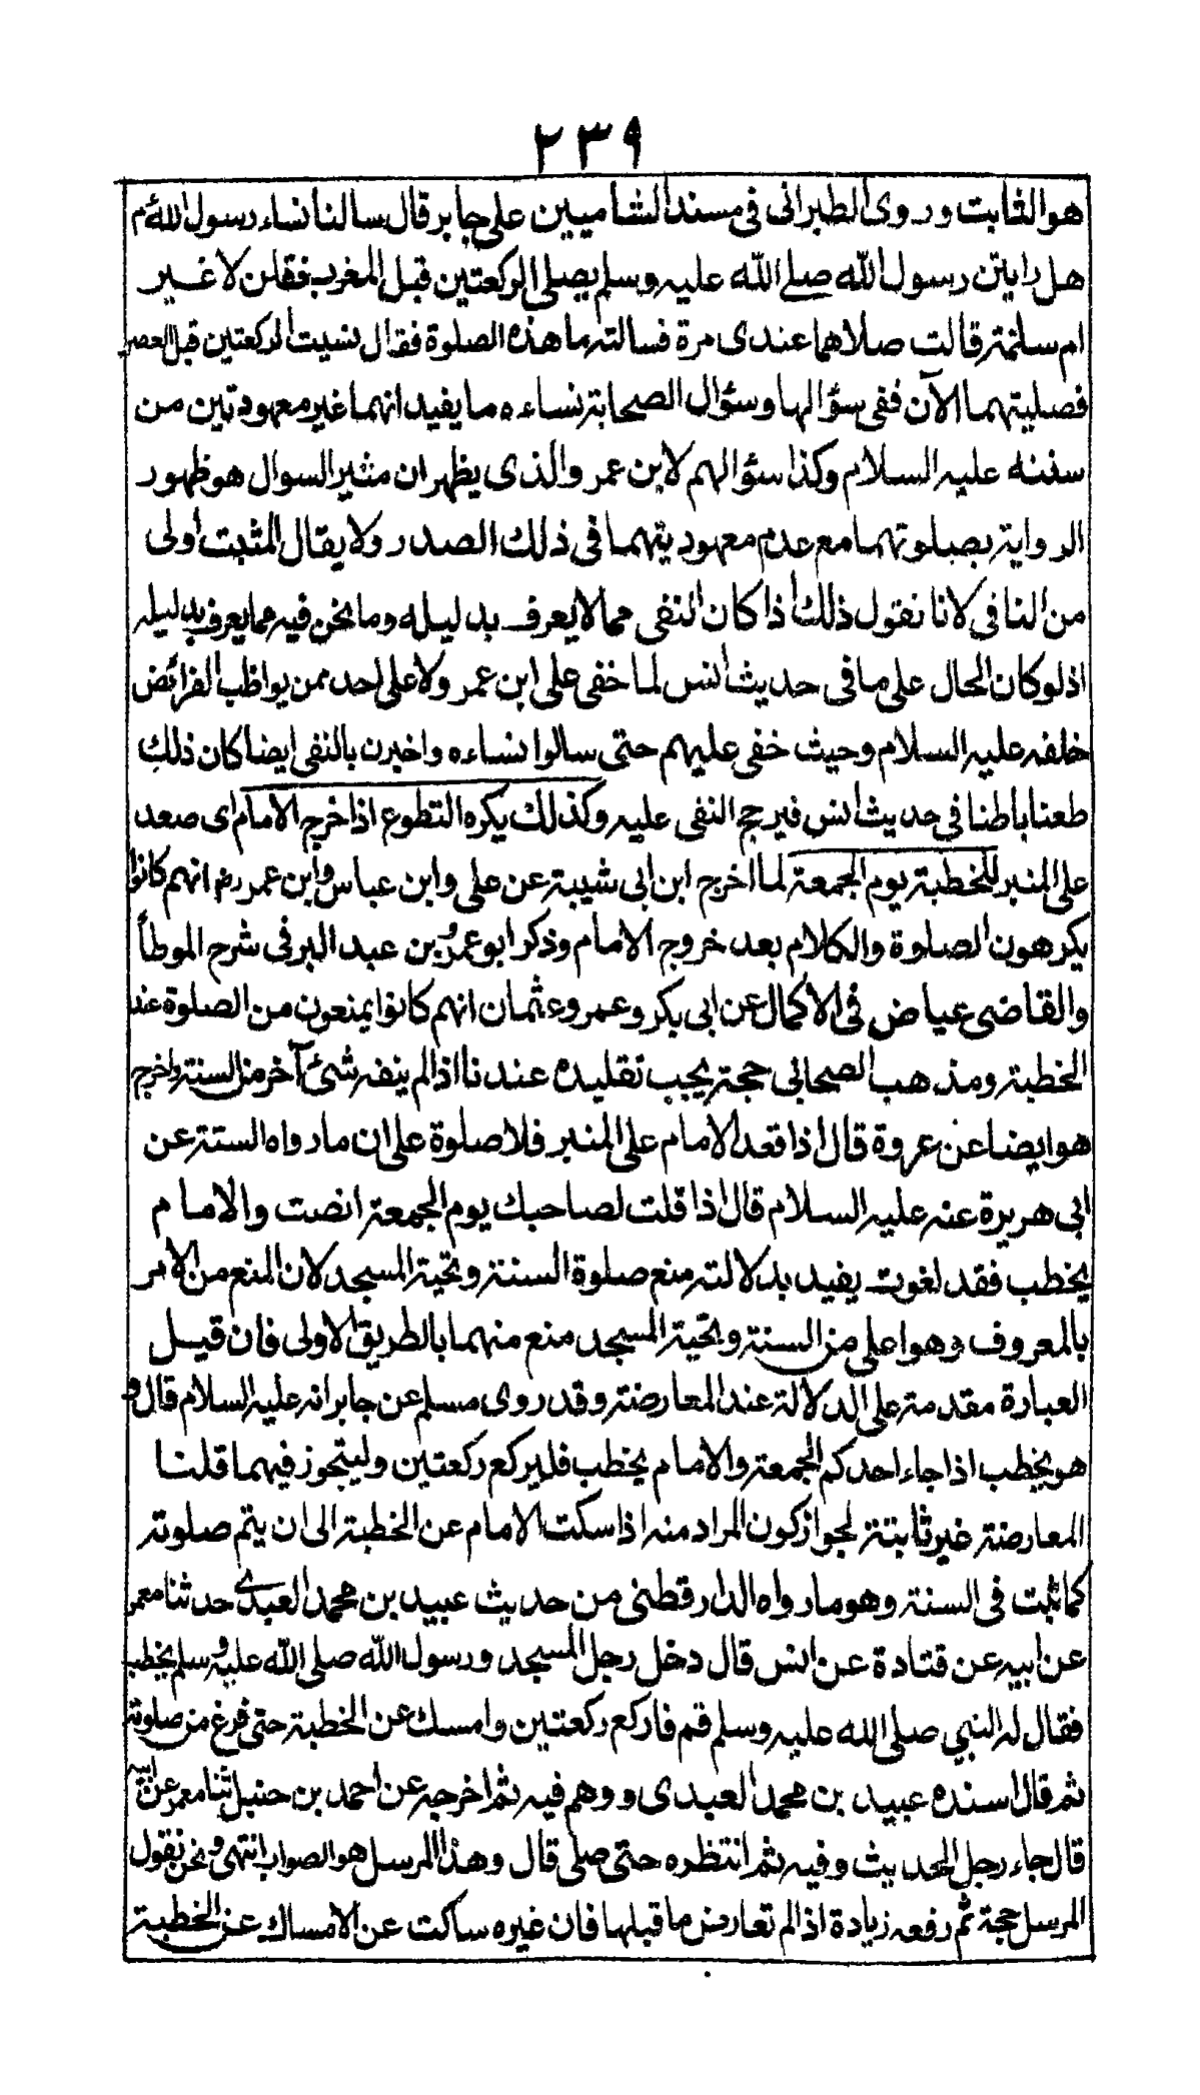 ٢٣٩
هو الثابت وروى الطبرانى فى مسند الشاميين على جابر قال سالنا نساء رسول اللهؐم
هل رايتن رسول الله صلے الله عليه وسلم يصلى الركعتين قبل المغرب فقلن لا غير
ام سلمة قالت صلاهما عندى مرة فسالته ما هذه الصلوة فقال نسيت الركعتين قبل العصر
فصليتهما الآن ففى سؤالها وسؤال الصحابة نساءه ما يفيد انهما غير معهودتين من
سننه عليه السلام وكذا سؤالهم لابن عمر والذى يظهر ان مثير السوال هو ظهور
الرواية بصلوتهما مع عدم معهوديتهما فى ذلك الصدر ولا يقال المثبت اولى
من النافى لانا نقول ذلك اذا كان النفى مما لا يعرف بدليله وما نحن فيه مما يعرف بدليله
اذ لو كان الحال على ما فى حديث انس لما خفى على ابن عمر ولا على احد ممن يواظب الفرائض
خلفه عليه السلام وحيث خفى عليهم حتى سالوا نساءه واخبرن بالنفى ايضا كان ذلك
طعنا باطنا فى حديث انس فيرجح النفى عليه وكذلك يكره التطوع اذا خرج الامام اى صعد
على المنبر للخطبة يوم الجمعة لما اخرج ابن ابى شيبة عن على وابن عباس وابن عمر رض انهم كانوا
يكرهون الصلوة والكلام بعد خروج الامام وذكر ابو عمرو بن عبد البر فى شرح الموطأ
والقاضى عياض فى الاكمال عن ابى بكر وعمر وعثمان انهم كانوا يمنعون من الصلوة عند
الخطبة ومذهب الصحابى حجة يجب تقليده عندنا اذا لم ينفه شئ آخر من السنة واخرج
هو ايضا عن عروة قال اذا قعد الامام على المنبر فلا صلوة على ان ما رواه الستة عن
ابى هريرة عنه عليه السلام قال اذا قلت لصاحبك يوم الجمعة انصت والامام
يخطب فقد لغوت يفيد بدلالته منع صلوة السنة وتحية المسجد لان المنع من الامر
بالمعروف وهو اعلى من السنة وتحية المسجد منع منهما بالطريق الاولى فان قيل
العبارة مقدمة على الدلالة عند المعارضة وقد روى مسلم عن جابر انه عليه السلام قال و
هو يخطب اذا جاء احدكم الجمعة والامام يخطب فليركع ركعتين وليتجوز فيهما قلنا
المعارضة غير ثابتة لجواز كون المراد منه اذا سكت الامام عن الخطبة الى ان يتم صلوته
كما ثبت فى السنة وهو ما رواه الدارقطنى من حديث عبيد بن محمد العبدى حدثنا معمر
عن ابيه عن قتادة عن انس قال دخل رجل المسجد ورسول الله صلى الله عليه وسلم يخطب
فقال له النبي صلى الله عليه وسلم قم فاركع ركعتين وامسك عن الخطبة حتى فرغ من صلوته
ثم قال اسنده عبيد بن محمد العبدى ووهم فيه ثم اخرجه عن احمد بن حنبل ثنا معمر عن ابيه
قال جاء رجل الحديث وفيه ثم انتظره حتى صلى قال وهذا المرسل هو الصواب انتهى ونحن نقول
المرسل حجة ثم رفعه زيادة اذا لم تعارض ما قبلها فان غيره ساكت عن الامساك عن الخطبة